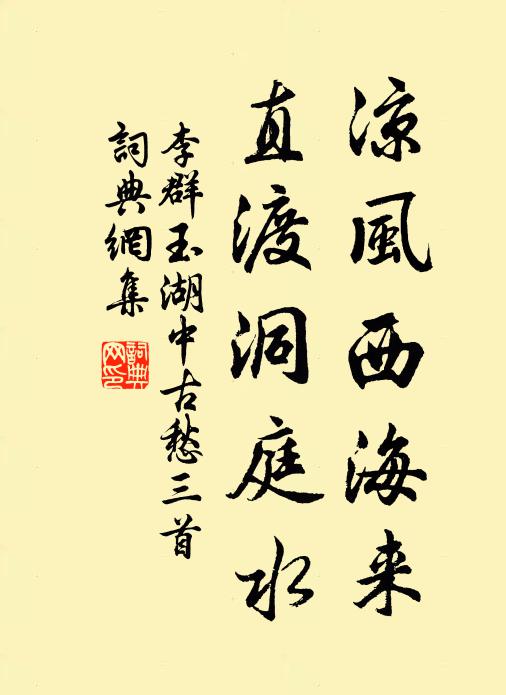 凉風西海来
直渡洞庭水
李群玉湖中古愁三首
詞典網集
詞典
网印